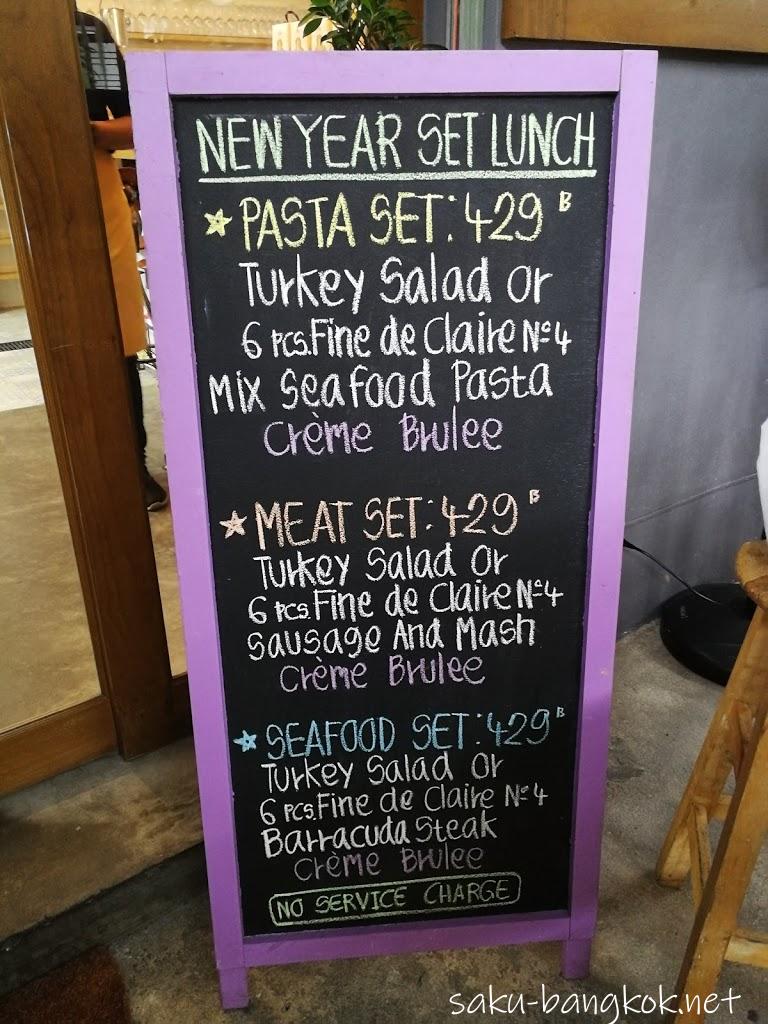 NEW YEAR SET LUNCH
☆ PASTA SET: 429 ᴮ
Turkey Salad Or
6 pcs. Fine de Claire Nº4
Mix Seafood Pasta
Crème Brulee
☆ MEAT SET: 429 ᴮ
Turkey Salad Or
6 pcs. Fine de Claire Nº4
Sausage And Mash
Crème Brulee
★ SEAFOOD SET: 429 ᴮ
Turkey Salad Or
6 pcs. Fine de Claire Nº4
Barracuda Steak
Crème Brulee
NO SERVICE CHARGE
saku-bangkok.net